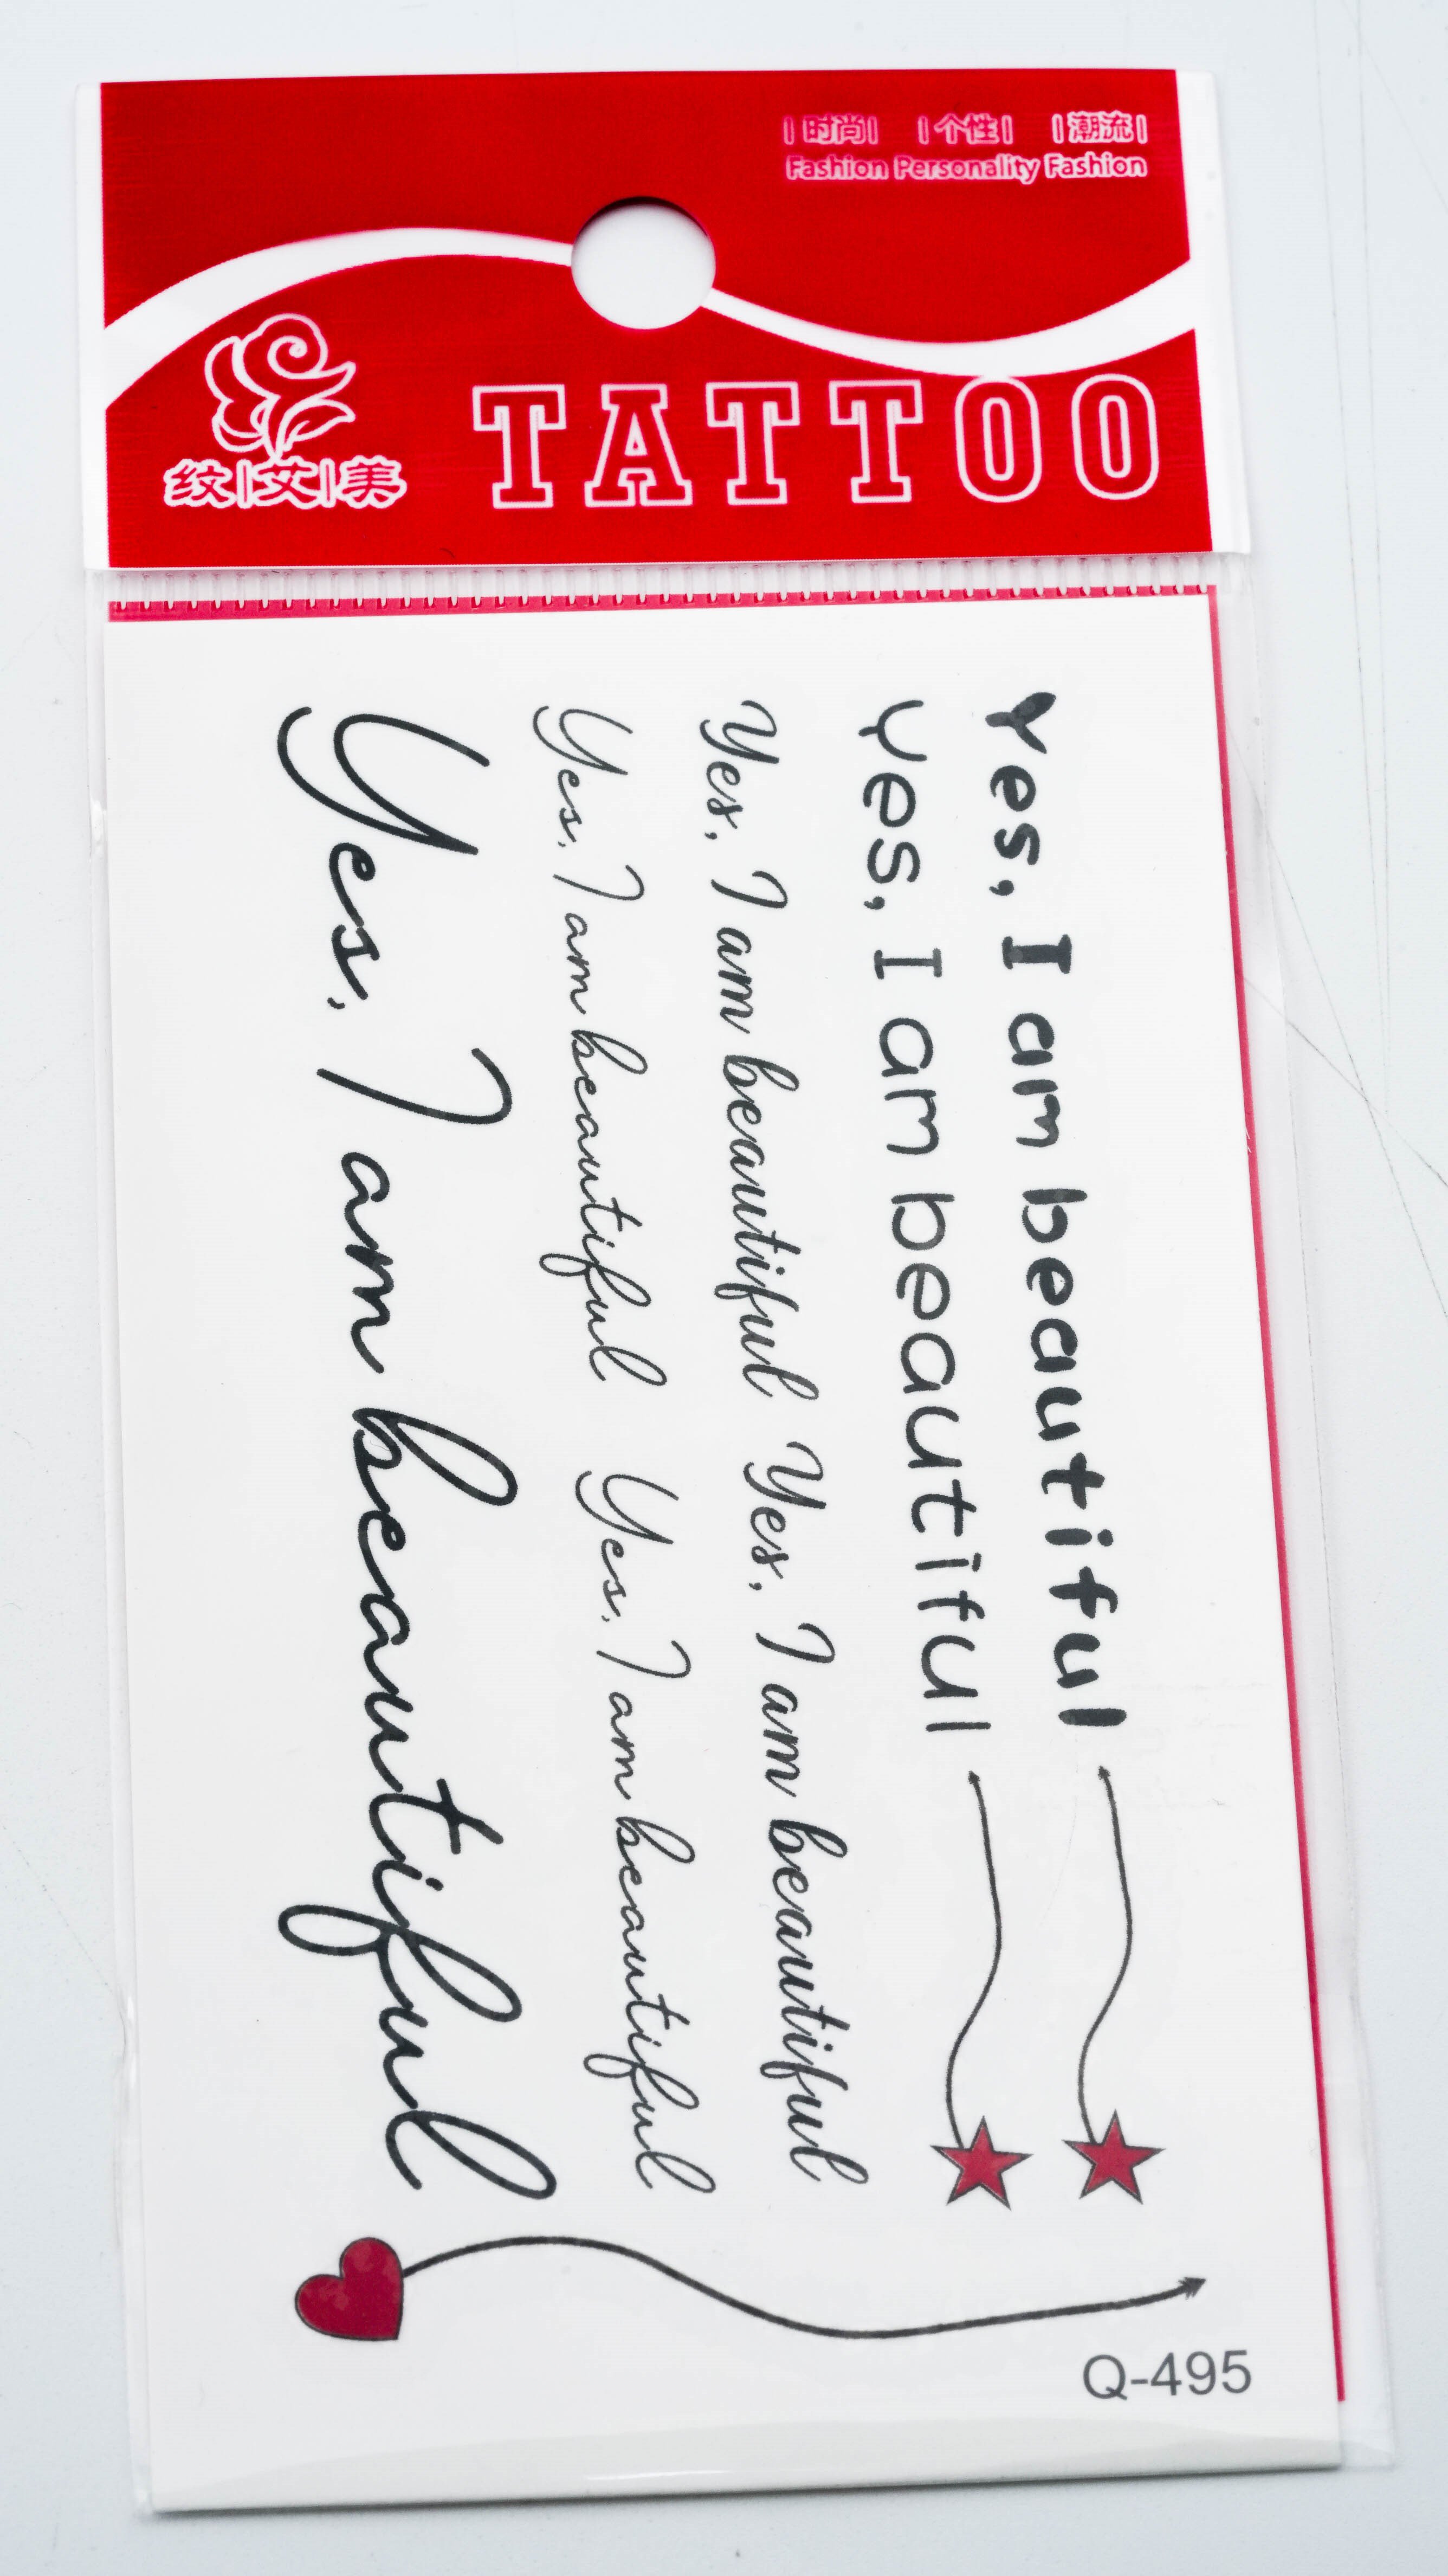 |时尚| |个性| |潮流|
Fashion Personality Fashion
纹|艾|美
TATTOO
Yes, I am beautiful
Yes, I am beautiful
Yes, I am beautiful Yes, I am beautiful
Yes, I am beautiful Yes, I am beautiful
Yes, I am beautiful
Q-495